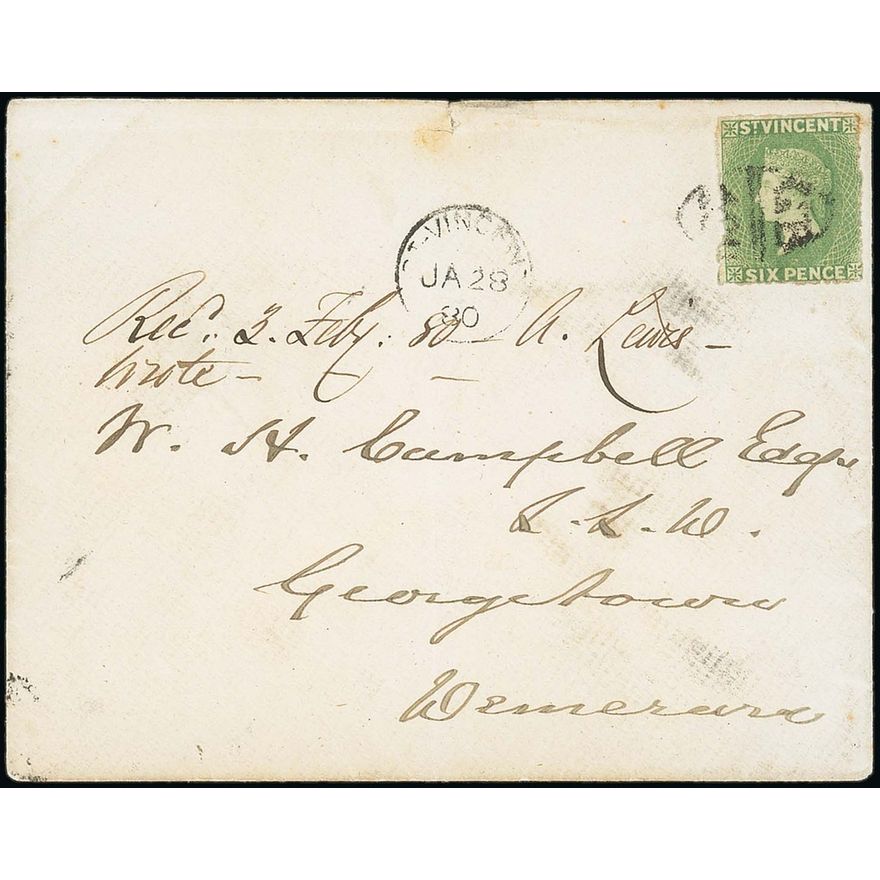 ST. VINCENT
SIX PENCE
ST. VINCENT
JA 28
80
Rec'. 3. Feby. 80 — A. Lewis —
Wrote —
W. H. Campbell Esqr
L.L.D.
Georgetown
Demerara